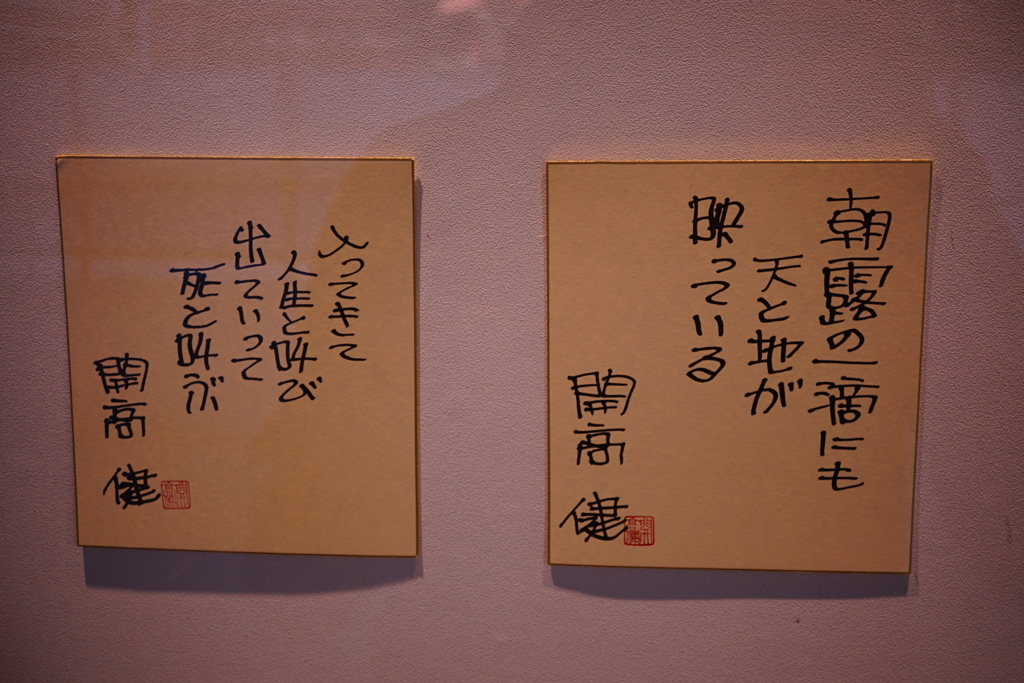 朝露の一滴にも
天と地が
映っている
開高
健
入ってきて
人生と叫び
出ていって
死と叫ぶ
開高
健